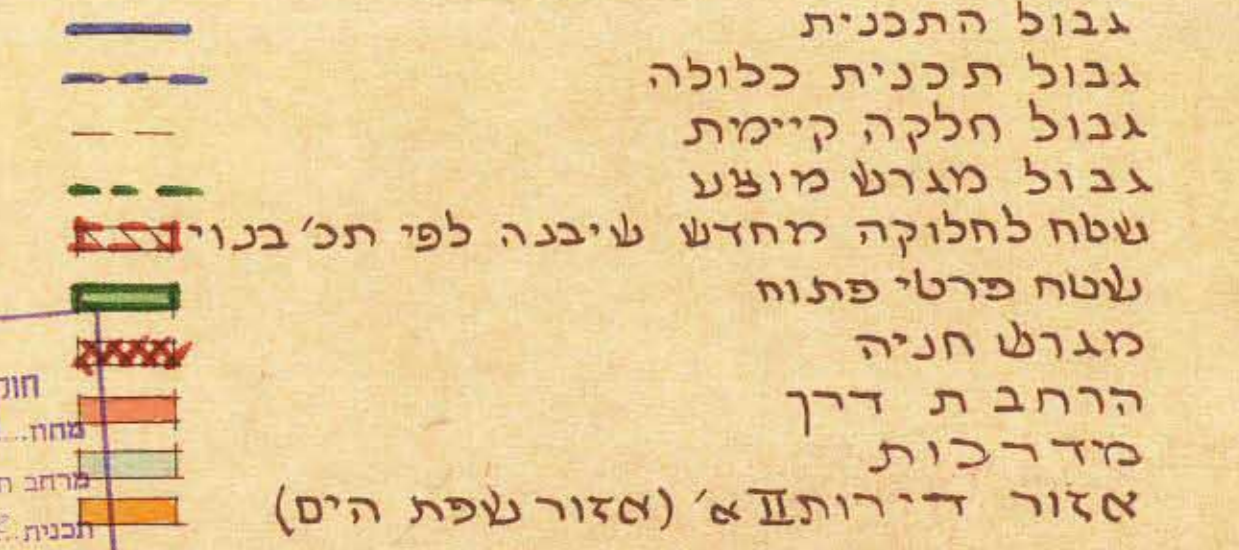 גבול התכנית
גבול תכנית כלולה
גבול חלקה קיימת
גבול מגרש מוצע
שטח לחלוקה מחדש שיבנה לפי תכ' בנוי
שטח פרטי פתוח
מגרש חניה
הרחבת דרך
מדרכות
אזור דירות II א' (אזור שפת הים)
חוק
מחוז...
מרחב
תכנית..